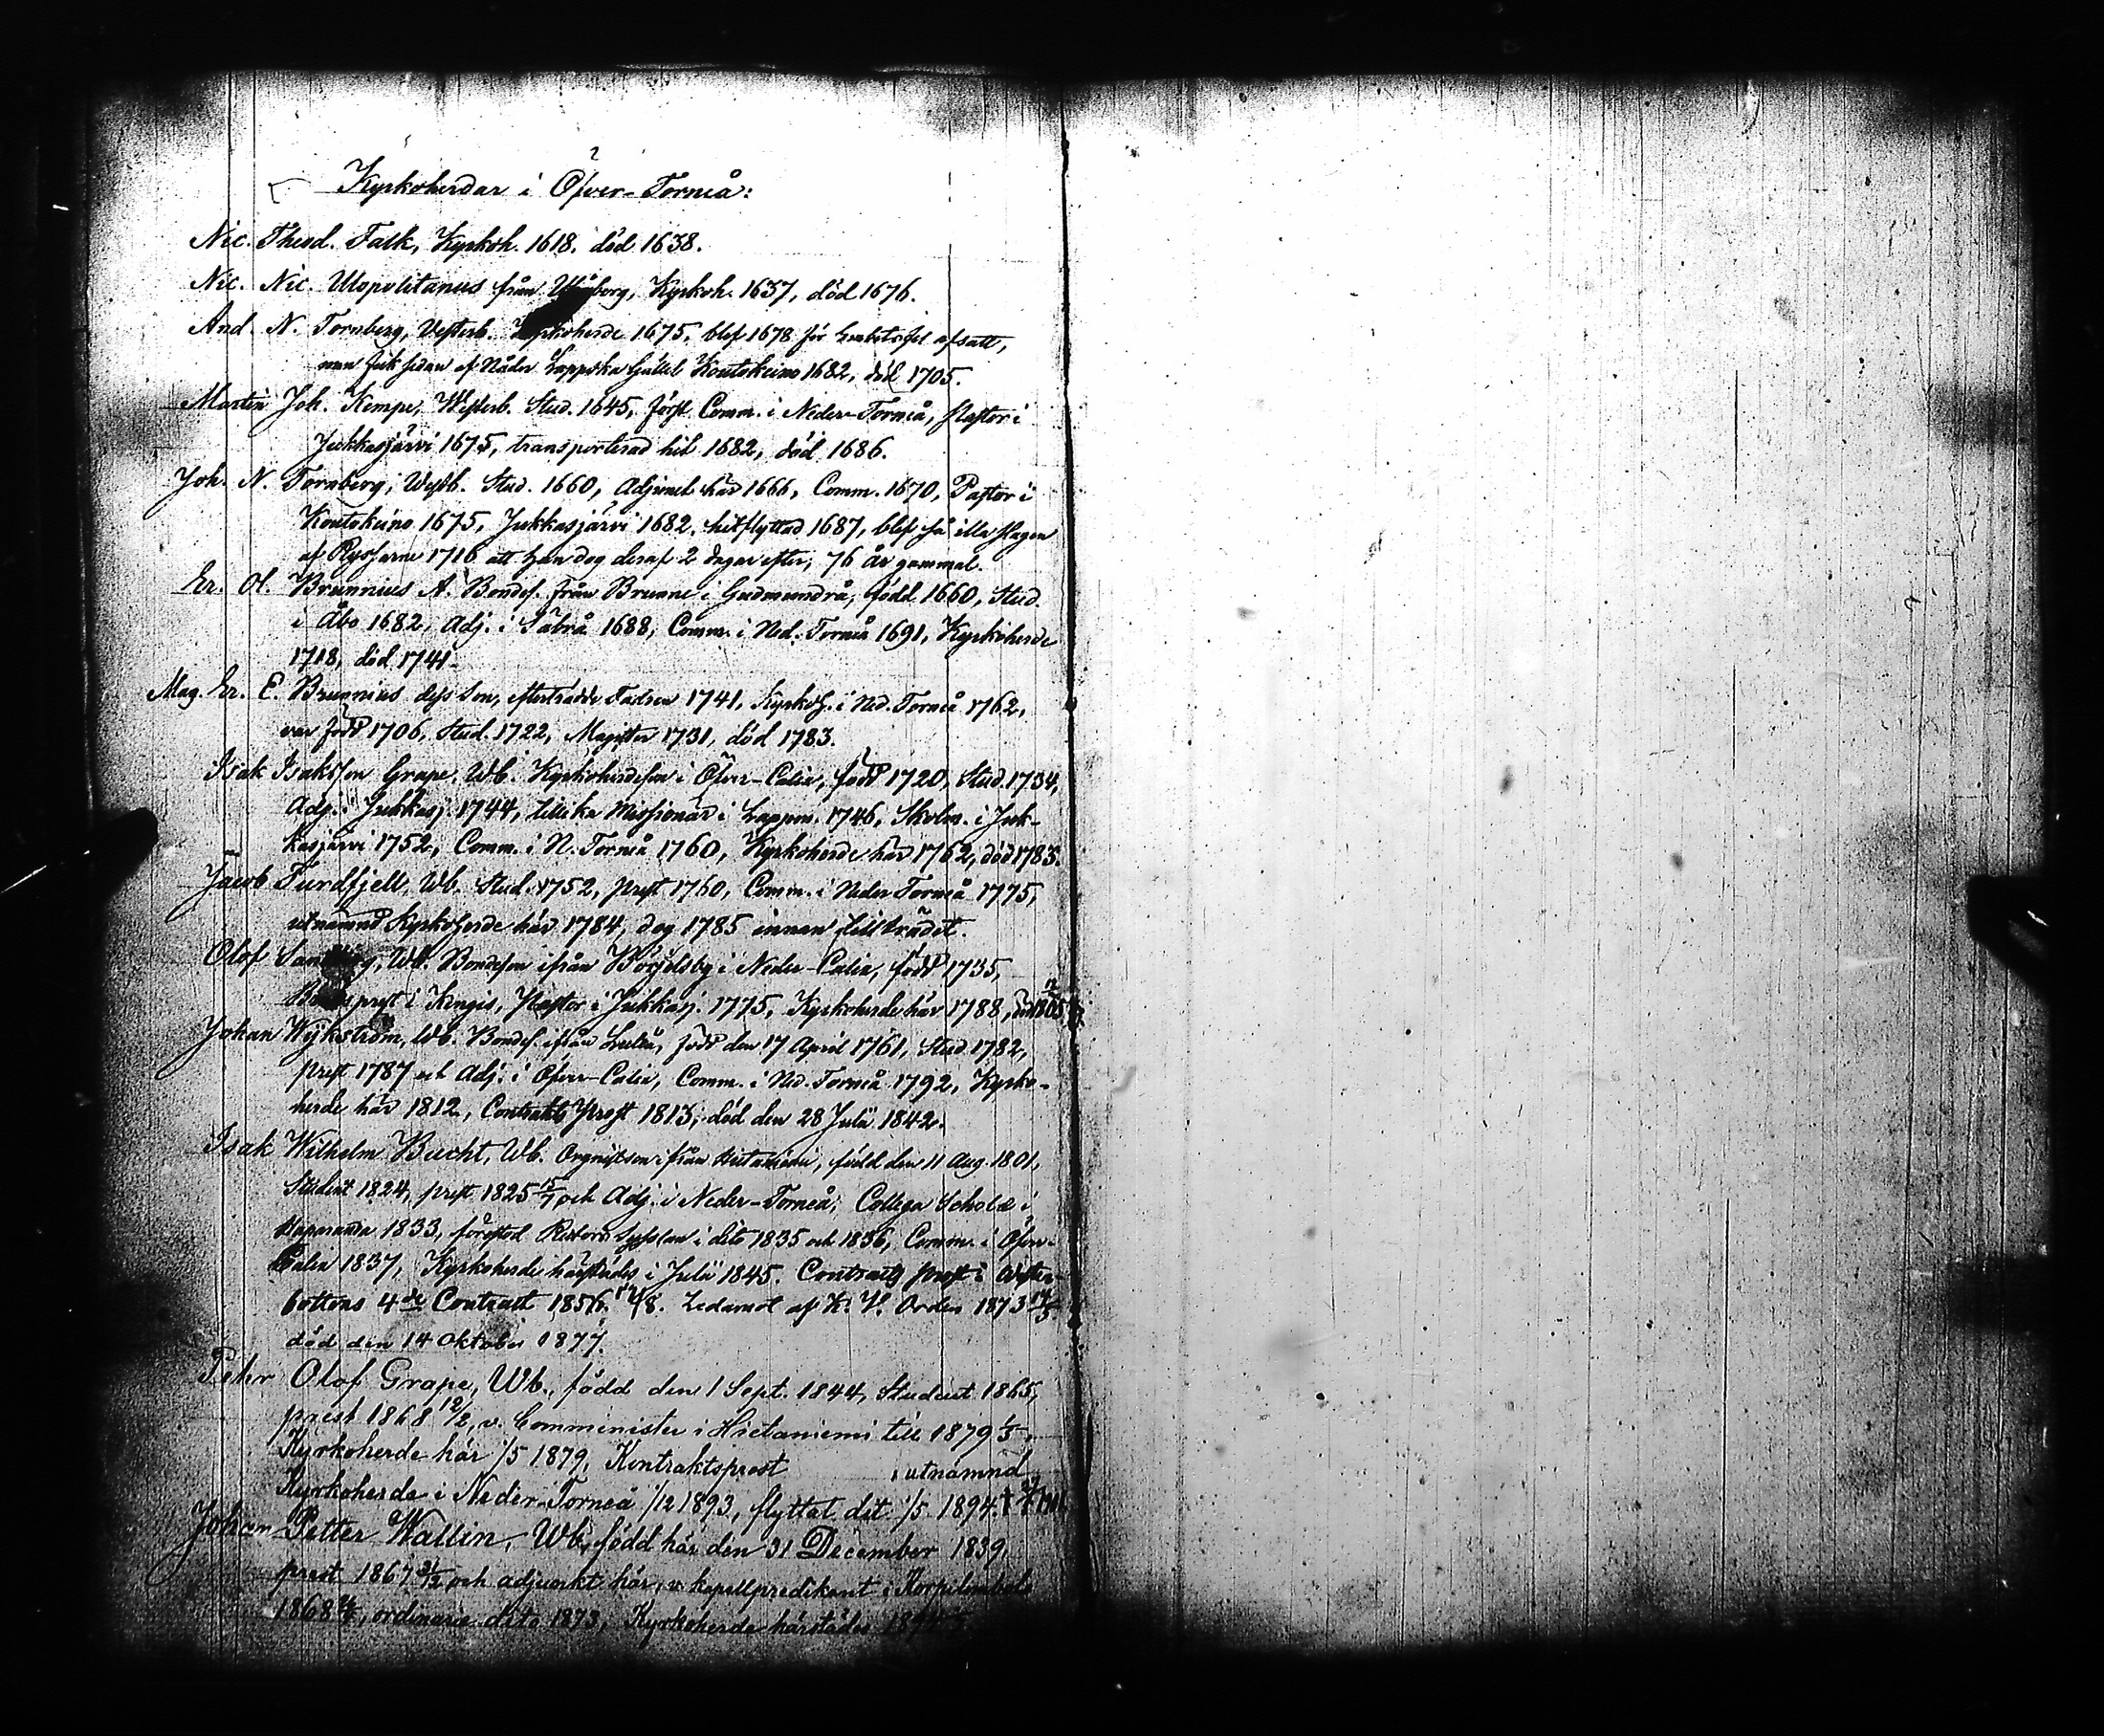 Kyrkoherdar i Öfver-Torneå:
Nic. Theod. Falk, Kyrkoh. 1618. död 1638.
Nic. Nic. Ulopolitanus från Uleåborg, Kyrkoh. 1637, död 1676.
And. N. Tornberg, Vesterb. Kyrkoherde 1675, blef 1678 för Embetsfel afsatt,
men fick sedan af Nåder Lappska Gället Koutokeino 1682, död 1705.
Martin Joh. Kempe, Westerb. Stud. 1645, först Comm. i Neder-Torneå, Pastor i
Jukkasjärvi 1675, transporterad hit 1682, död 1686.
Joh. N. Tornberg, Westb. Stud. 1660, Adjunct här 1666, Comm. 1670, Pastor i
Koutokeino 1675, Jukkasjärvi 1682, hitflyttad 1687, blef så illa slagen
af Ryssarne 1716 att han dog deraf 2 dagar efter, 76 år gammal.
Er. Ol. Brunnius A. Bondes. från Brunne i Gudmundrå, född 1660, Stud.
i Åbo 1682, Adj. i Säbrå 1688, Comm. i Ned. Torneå 1691, Kyrkoherde
1718, död 1741.
Mag. Er. E. Brunnius dess Son, efterträdde Fadren 1741, Kyrkoh. i Ned. Torneå 1762,
var född 1706, Stud. 1722, Magister 1731, död 1783.
Isak Isaksson Grape, Wb. Kyrkoherdeson i Öfver-Calix, född 1720, Stud. 1734,
Adj. i Jukkasj. 1744, tillika Missionär i Lappm. 1746, Skolm. i Juk-
kasjärvi 1752, Comm. i N. Torneå 1760, Kyrkoherde här 1762, död 1783.
Jacob Turdfjell, Wb. Stud. 1752, prest 1760, Comm. i Neder Torneå 1775,
utnämnd Kyrkoherde här 1784, dog 1785 innan tillträdet.
Olof, Wb. Bondeson ifrån Börjelsby i Neder-Calix, född 1735,
i Kengis, Pastor i Jukkasj. 1775, Kyrkoherde här 1788,
Johan Wijkström, Wb. Bondes. ifrån Luleå, född den 17 April 1761, Stud. 1782,
prest 1787 och Adj. i Öfver-Calix, Comm. i Ned. Torneå 1792, Kyrko-
herde här 1812, Contracts Prost 1813, död den 28 Julii 1842.
Isak Wilhelm Bucht, Wb. Orgnistson ifrån Hietaniemi, född den 11 Aug. 1801,
Student 1824, prest 1825 och Adj. i Neder-Torneå, Collega Scholæ i
Haparanda 1833, förestod Rectors Sysslan i dito 1835 och 1836, Comm. i Öfver-
Calix 1837, Kyrkoherde härstädes i Julii 1845. Contracts prost i Wester-
bottens 4de Contract 1856. Ledamot af K. V. Orden 1873
död den 14 Oktober 1877.
Pehr Olof Grape, Wb., född den 1 Sept. 1844, Student 1865,
prest 1868 12/2, v. Comminister i Hietaniemi till 1879 1/5.
Kyrkoherde här 1/5 1879, Kontraktsprost, utnämnd
Kyrkoherde i Neder-Torneå 1/12 1893, flyttat dit 1/5 1894. †
Johan Petter Wallin, Wb, född här den 31 December 1839,
prest 1867 och adjunkt här, v. kapellpredikant i Korpilombolo
1868, ordinarie dito 1873, Kyrkoherde härstädes